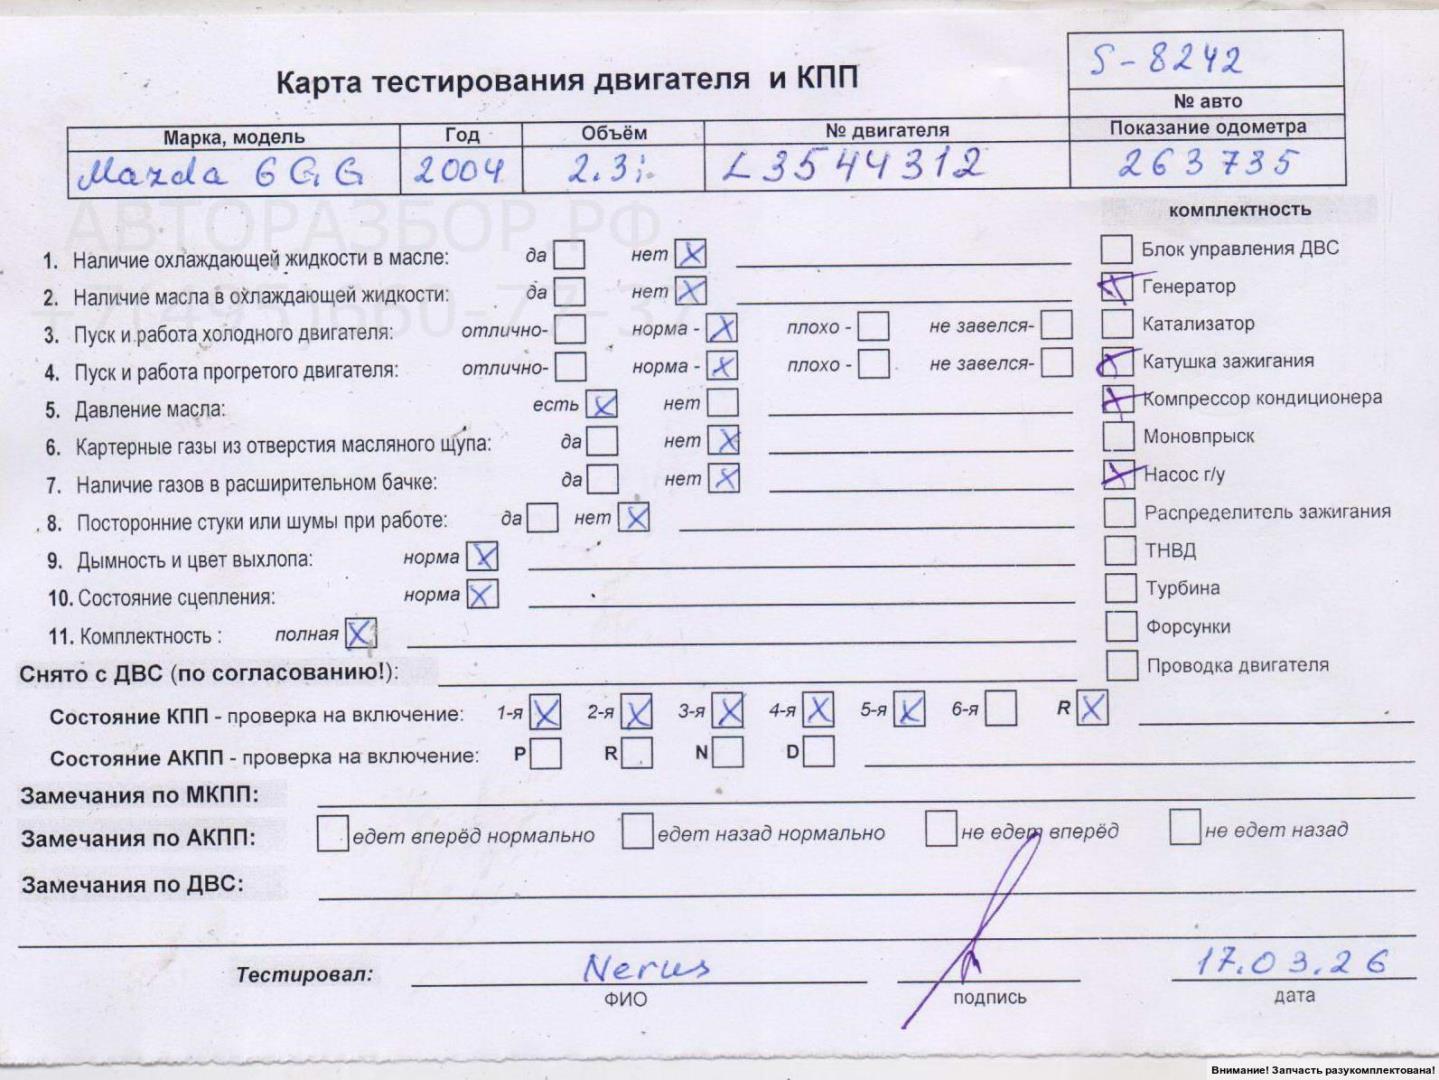 Карта тестирования двигателя и КПП
S-8242
№ авто
Марка, модель Год Объём № двигателя Показание одометра
Mazda 6 GG 2004 2.3i. L3544312 263735
АВТОРАЗБОР.РФ
+7(495)660-77-37
комплектность
1. Наличие охлаждающей жидкости в масле: да нет X Блок управления ДВС
2. Наличие масла в охлаждающей жидкости: да нет X X Генератор
3. Пуск и работа холодного двигателя: отлично- норма - X плохо - не завелся- Катализатор
4. Пуск и работа прогретого двигателя: отлично- норма - X плохо - не завелся- X Катушка зажигания
5. Давление масла: есть X нет X Компрессор кондиционера
6. Картерные газы из отверстия масляного щупа: да нет X Моновпрыск
7. Наличие газов в расширительном бачке: да нет X X Насос г/у
8. Посторонние стуки или шумы при работе: да нет X Распределитель зажигания
9. Дымность и цвет выхлопа: норма X ТНВД
10. Состояние сцепления: норма X Турбина
11. Комплектность : полная X Форсунки
Снято с ДВС (по согласованию!): Проводка двигателя
Состояние КПП - проверка на включение: 1-я X 2-я X 3-я X 4-я X 5-я X 6-я R X
Состояние АКПП - проверка на включение: P R N D
Замечания по МКПП:
Замечания по АКПП: едет вперёд нормально едет назад нормально не едет вперёд не едет назад
Замечания по ДВС:
Тестировал: Nerus 17.03.26
ФИО подпись дата
Внимание! Запчасть разукомплектована!